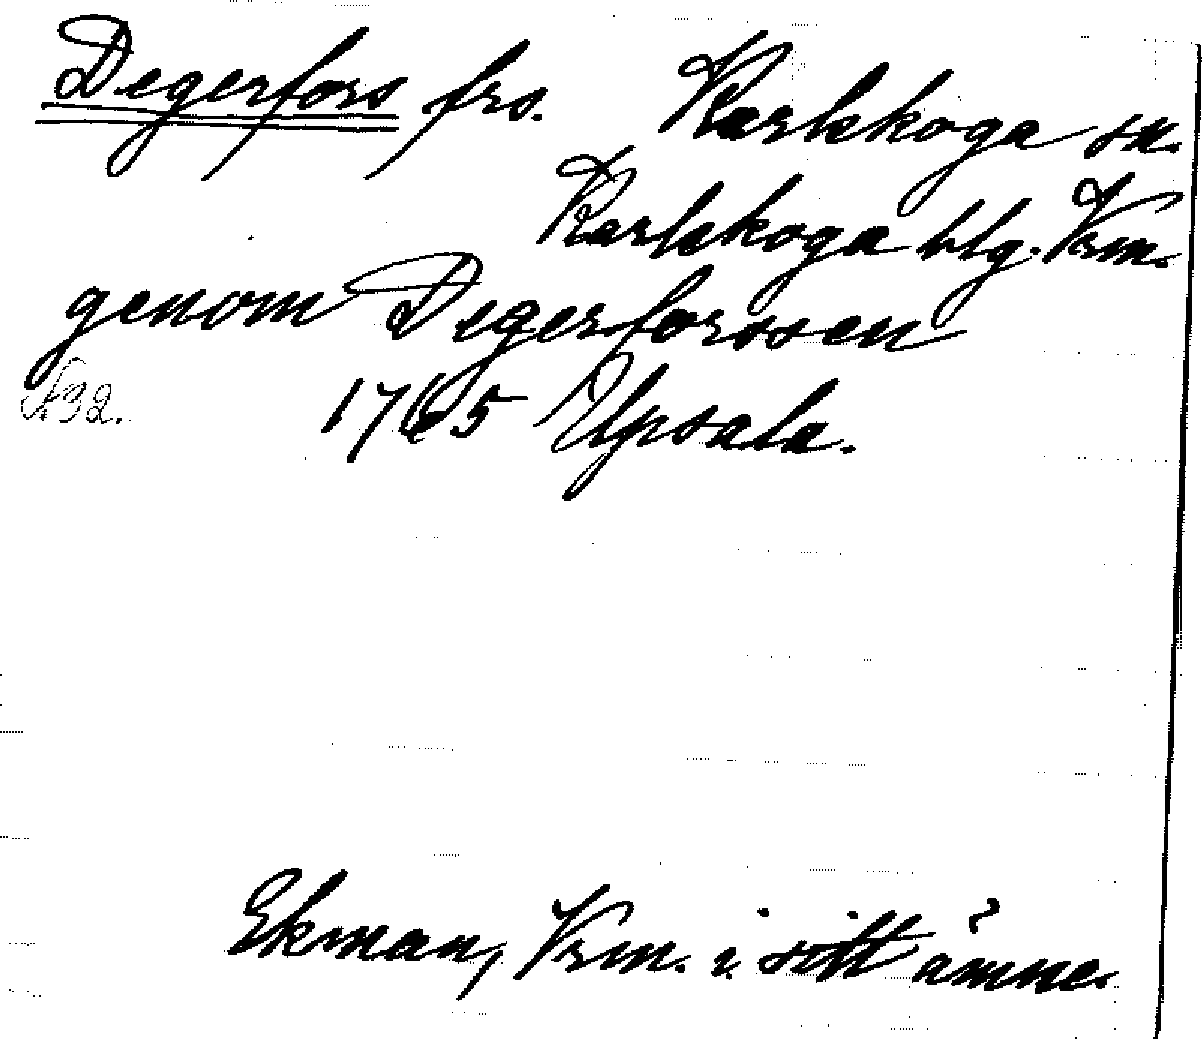 Degerfors frs. Karlskoga sn.
Karlskoga blg. Vrm.
genom Degerforssen
s. 92. 1765 Upsala.
Ekman, Vrm. i sitt ämne.